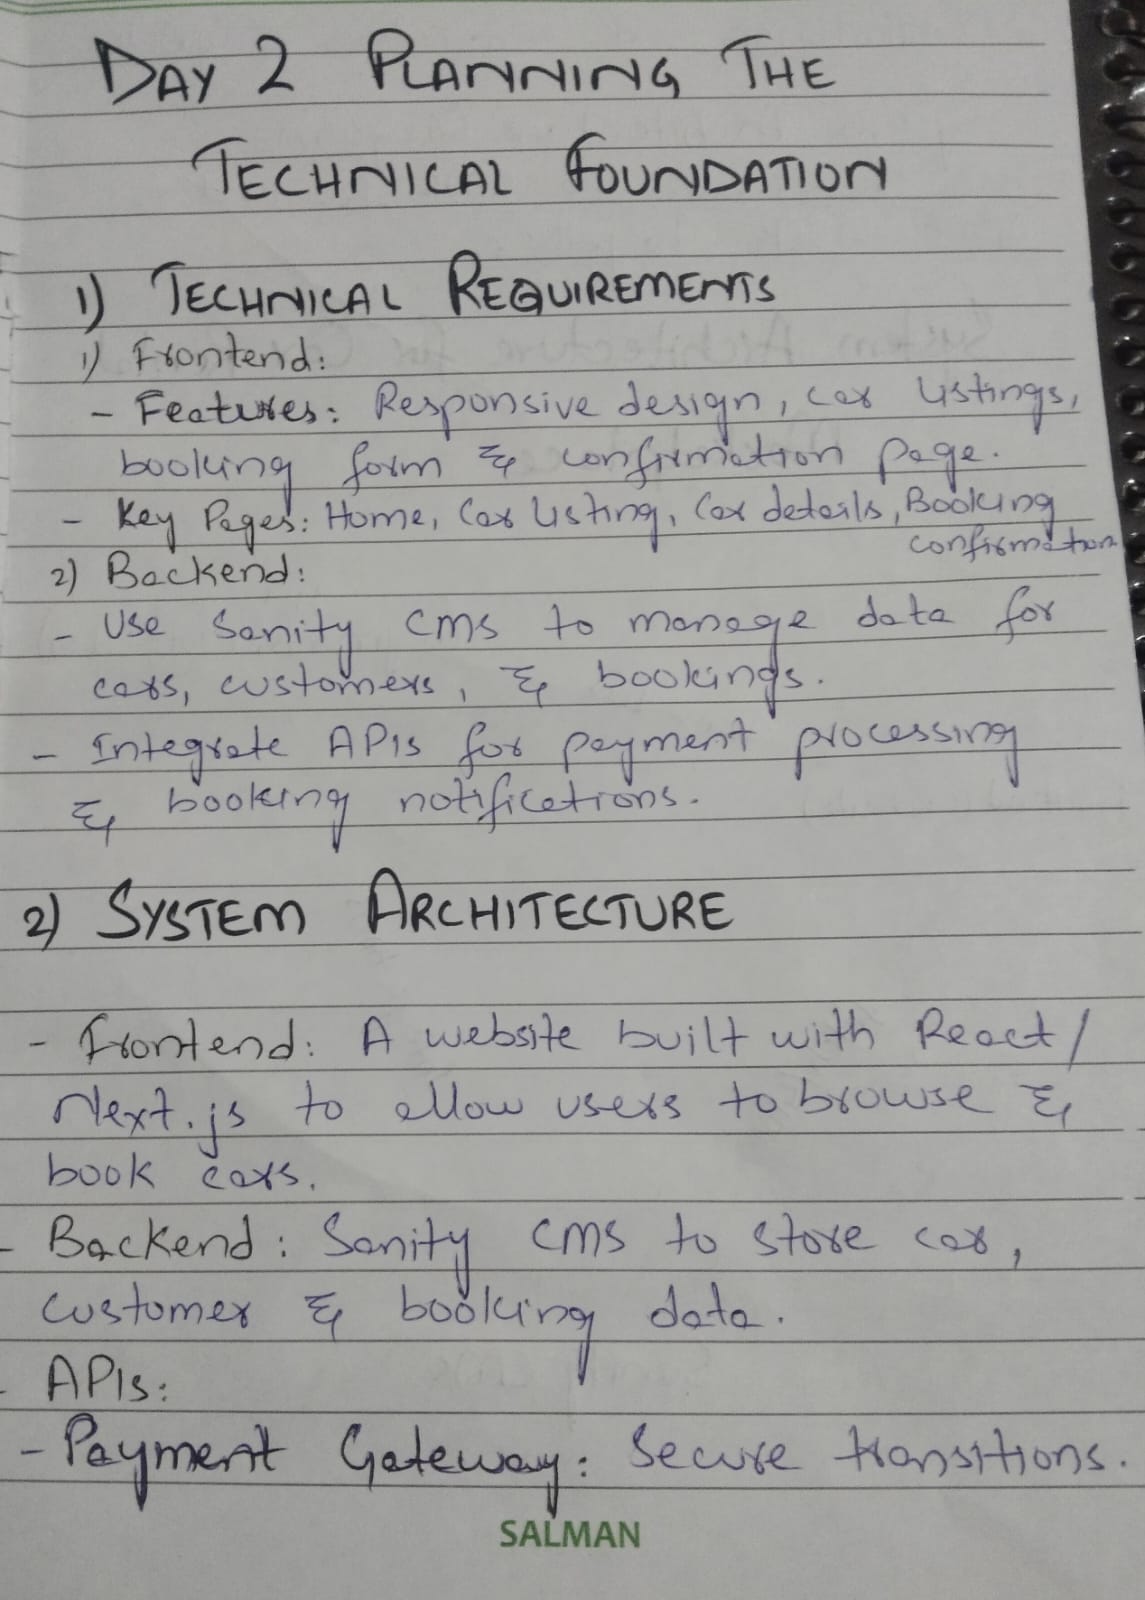 DAY 2 PLANNING THE
TECHNICAL FOUNDATION
1) TECHNICAL REQUIREMENTS
1) Frontend:
- Features: Responsive design, car listings,
booking form & confirmation page.
- Key Pages: Home, Car listing, Car details, Booking
confirmation
2) Backend:
- Use Sanity CMS to manage data for
cars, customers, & bookings.
- Integrate APIs for payment processing
& booking notifications.
2) SYSTEM ARCHITECTURE
- Frontend: A website built with React/
Next.js to allow users to browse &
book cars.
- Backend: Sanity CMS to store car,
customer & booking data.
- APIs:
- Payment Gateway: Secure transitions.
SALMAN